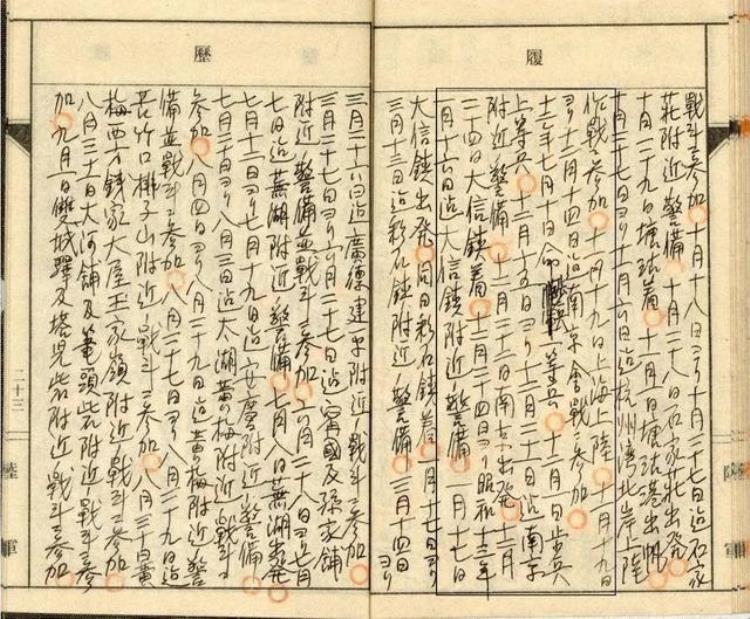 履
戰斗ニ参加 十月十八日ヨリ十月二十七日迠石家
莊附近ノ警備 十月二十八日石家莊出発
十月二十九日塘沽着 十一月一日塘沽港出帆
十一月六日迠杭州湾北岸上陸
作戰ニ参加 十一月十九日上海上陸 十一月十九日
ヨリ十二月十四日迠南京會戰ニ参加
十二年七月十日命 一等兵 十二月一日歩兵
上等兵 十二月十五日ヨリ十二月二十一日迠南京
附近ノ警備 十二月二十二日南京出発 十二月
二十四日大信鎮着 十二月二十四日ヨリ昭和十三年
一月十六日迠大信鎮附近ノ警備 一月十七日
大信鎮出発 同日彩石鎮着 一月十七日ヨリ
三月十三日迠彩石鎮附近ノ警備 三月十四日
ヨリ
歷
三月二十六日迠廣德建平附近ノ戰斗ニ参加
三月二十七日ヨリ六月二十七日迠寗國及孫家舖
附近ノ警備並戰斗ニ参加 六月二十八日ヨリ七月
七日迠蕪湖附近ノ警備 七月八日蕪湖出発
七月十二日ヨリ七月十九日迠安慶附近ノ警備
七月二十日ヨリ八月三日迠太湖黄梅附近ノ戰斗ニ
参加 八月四日ヨリ八月二十九日迠黄梅附近ノ警
備並戰斗ニ参加 八月二十七日ヨリ八月二十九日迠
苦竹口梆子山附近ノ戰斗ニ参加 八月三十日黄
梅西方錢家大屋王家嶺附近ノ戰斗ニ参加
八月三十一日大河舖及筆頭岩附近ノ戰斗ニ参
加 九月一日雙城驛及塔児岩附近ノ戰斗ニ参加
二十三
陸
軍
陸
軍